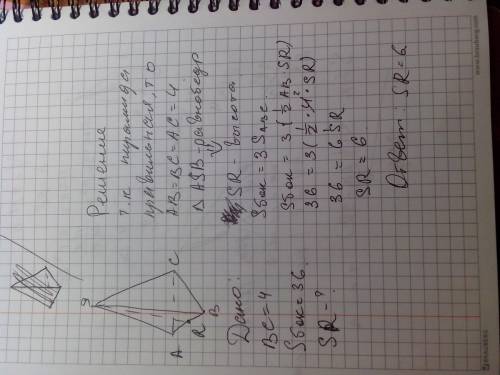 S
A
C
R
B
Дано:
BC=4
Sбок=36
SR-?
Решение
т.к пирамида
правильная, то
AB=BC=AC=4
Δ ASB-равнобедр
SR- высота
Sбок=3 SABC.
Sбок= 3(1/2 AB·SR)
36=3(1/2·4·SR)
36=6SR
SR=6
Ответ: SR=6.